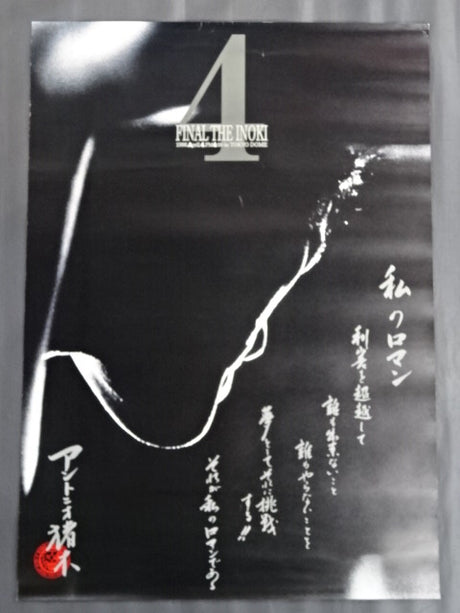 4
FINAL THE INOKI
TOKYO DOME
私のロマン
利害を超越して
誰も出来ないこと
誰もやらないことを
挑戦
する!!
それが私のロマンである
アントニオ猪木